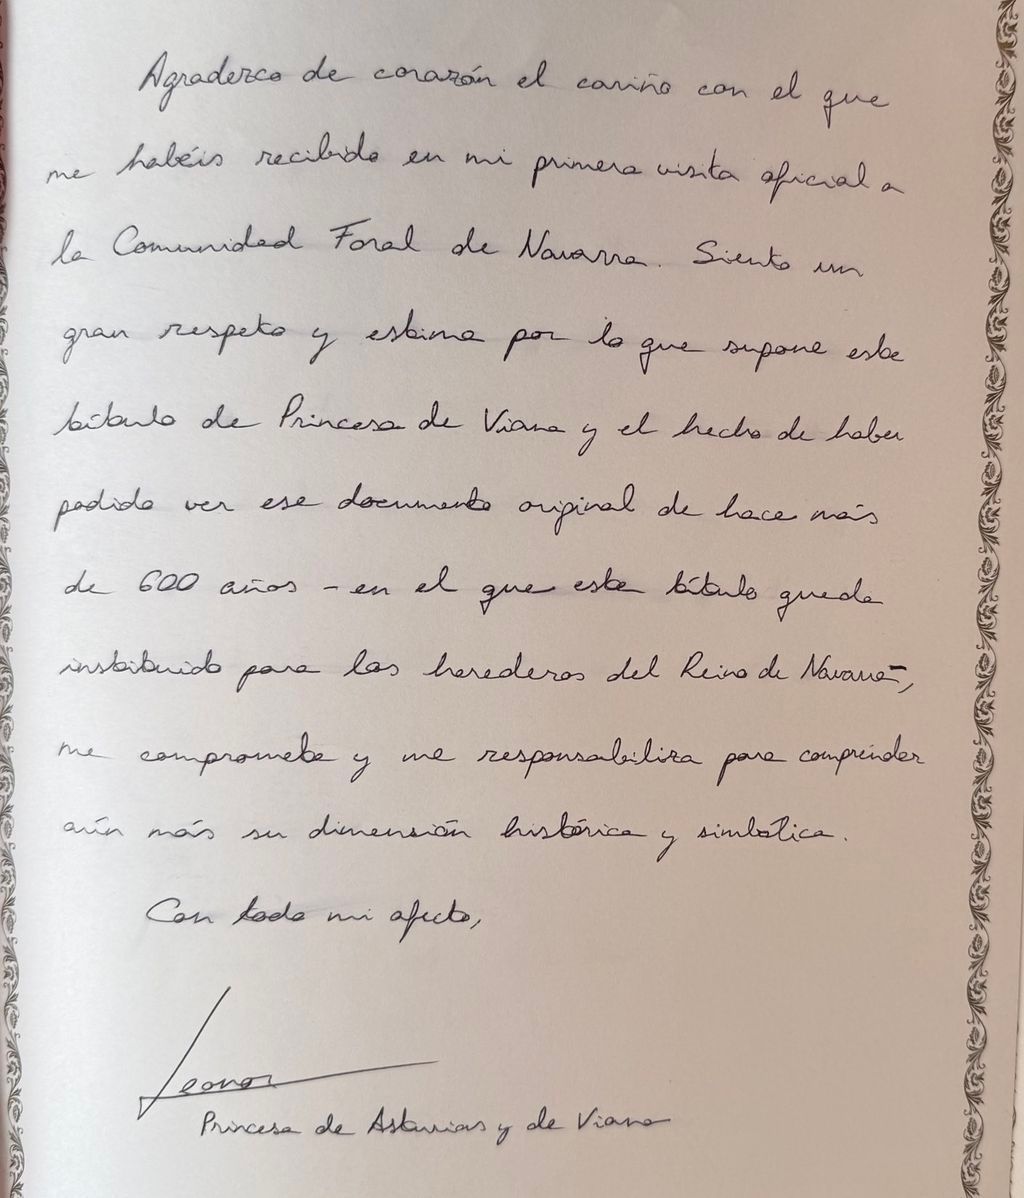 Agradezco de corazón el cariño con el que
me habéis recibido en mi primera visita oficial a
la Comunidad Foral de Navarra. Siento un
gran respeto y estima por lo que supone este
título de Princesa de Viana y el hecho de haber
podido ver ese documento original de hace más
de 600 años - en el que este título queda
instituido para los herederos del Reino de Navarra-,
me compromete y me responsabiliza para comprender
aún más su dimensión histórica y simbólica.
Con todo mi afecto,
Leonor
Princesa de Asturias y de Viana